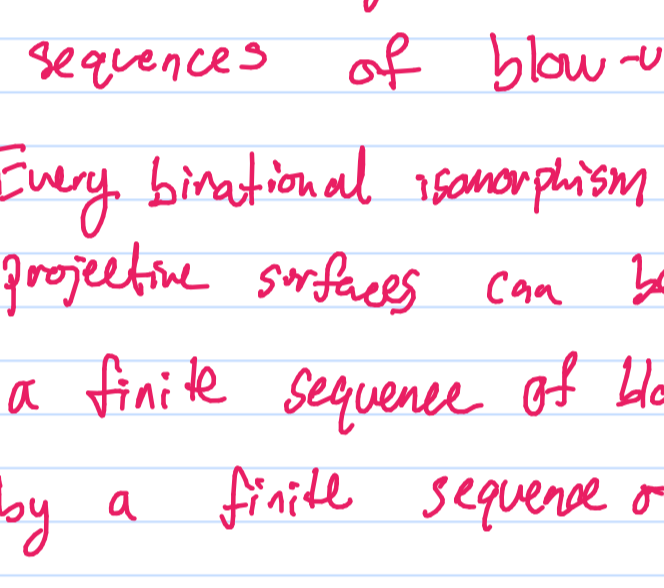 sequences of blow-u
Every birational isomorphism
projective surfaces can be
a finite sequence of blo
by a finite sequence o